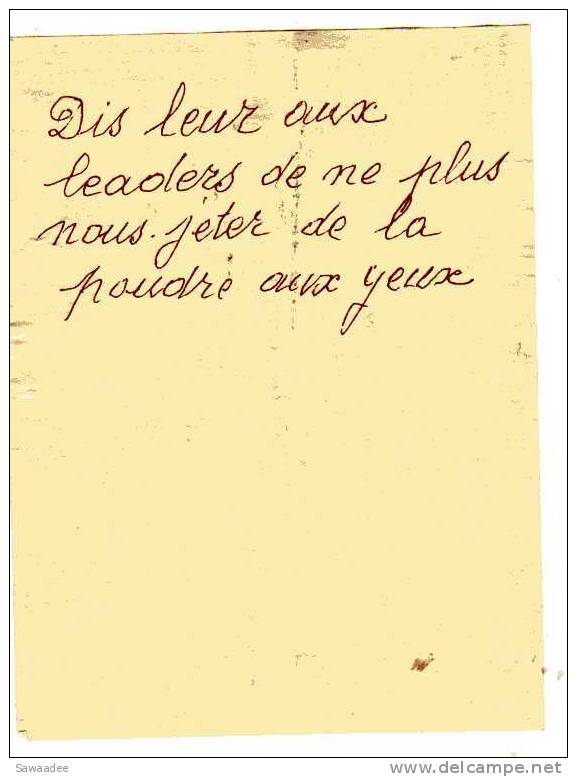 Dis leur aux
leaders de ne plus
nous. jéter de la
poudre aux yeux
Sawaadee
delcampe.net